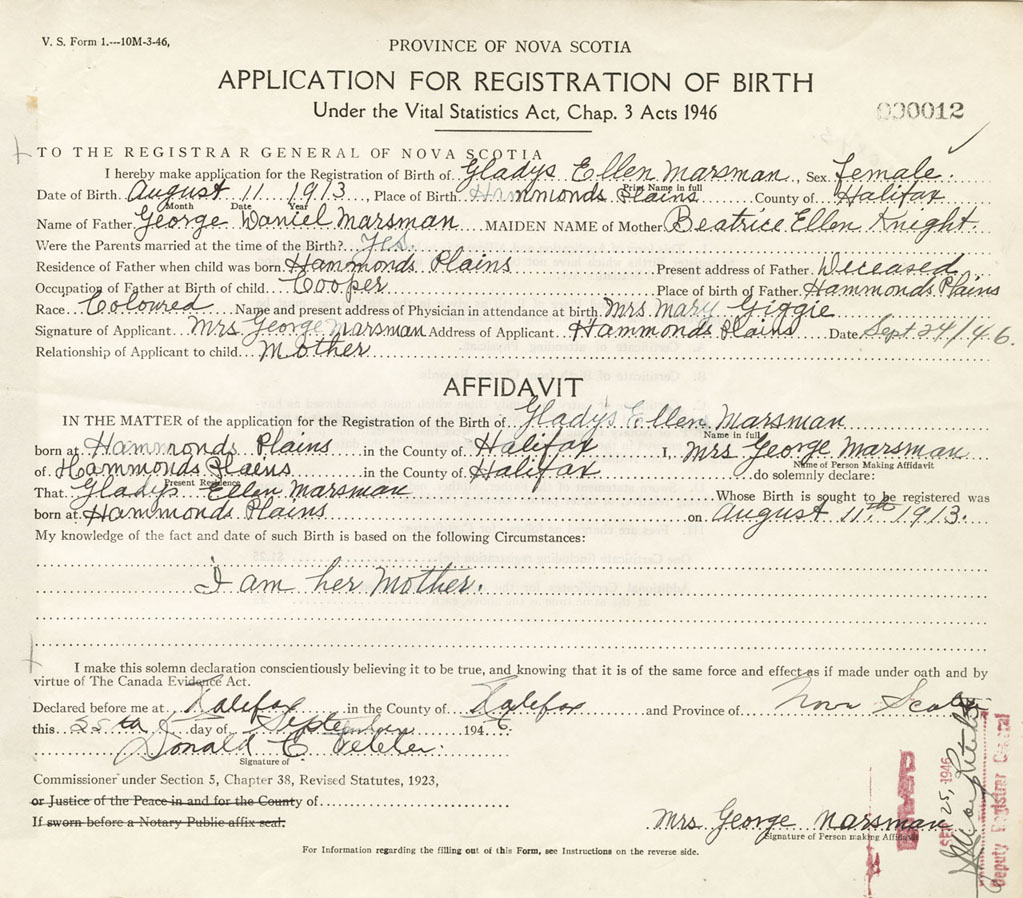 V. S. Form 1.---10M-3-46,
PROVINCE OF NOVA SCOTIA
APPLICATION FOR REGISTRATION OF BIRTH
Under the Vital Statistics Act, Chap. 3 Acts 1946
000012
TO THE REGISTRAR GENERAL OF NOVA SCOTIA
I hereby make application for the Registration of Birth of Gladys Ellen Marsman, Sex Female.
Print Name in full
Date of Birth August 11 1913, Place of Birth Hammonds Plains County of Halifax
Month Date Year
Name of Father George Daniel Marsman MAIDEN NAME of Mother Beatrice Ellen Knight.
Were the Parents married at the time of the Birth? Yes.
Residence of Father when child was born Hammonds Plains Present address of Father Deceased
Occupation of Father at Birth of child Cooper Place of birth of Father Hammonds Plains
Race Coloured Name and present address of Physician in attendance at birth Mrs Mary Giggie
Signature of Applicant Mrs George Marsman Address of Applicant Hammonds Plains Date Sept 24/46.
Relationship of Applicant to child Mother
AFFIDAVIT
IN THE MATTER of the application for the Registration of the Birth of Gladys Ellen Marsman
Name in full
born at Hammonds Plains in the County of Halifax I, Mrs George Marsman
Name of Person Making Affidavit
of Hammonds Plains in the County of Halifax do solemnly declare:
Present Residence
That Gladys Ellen Marsman Whose Birth is sought to be registered was
born at Hammonds Plains on August 11th 1913.
My knowledge of the fact and date of such Birth is based on the following Circumstances:
I am her Mother.
I make this solemn declaration conscientiously believing it to be true, and knowing that it is of the same force and effect as if made under oath and by
virtue of The Canada Evidence Act.
Declared before me at Halifax in the County of Halifax and Province of Nova Scotia
this 25th day of September 1946
Donald C.
Signature of
Commissioner under Section 5, Chapter 38, Revised Statutes, 1923,
or Justice of the Peace in and for the County of
If sworn before a Notary Public affix seal.
Mrs George Marsman
Signature of Person making Affidavit
SEP 25, 1946
Deputy Registrar General
For Information regarding the filling out of this Form, see Instructions on the reverse side.